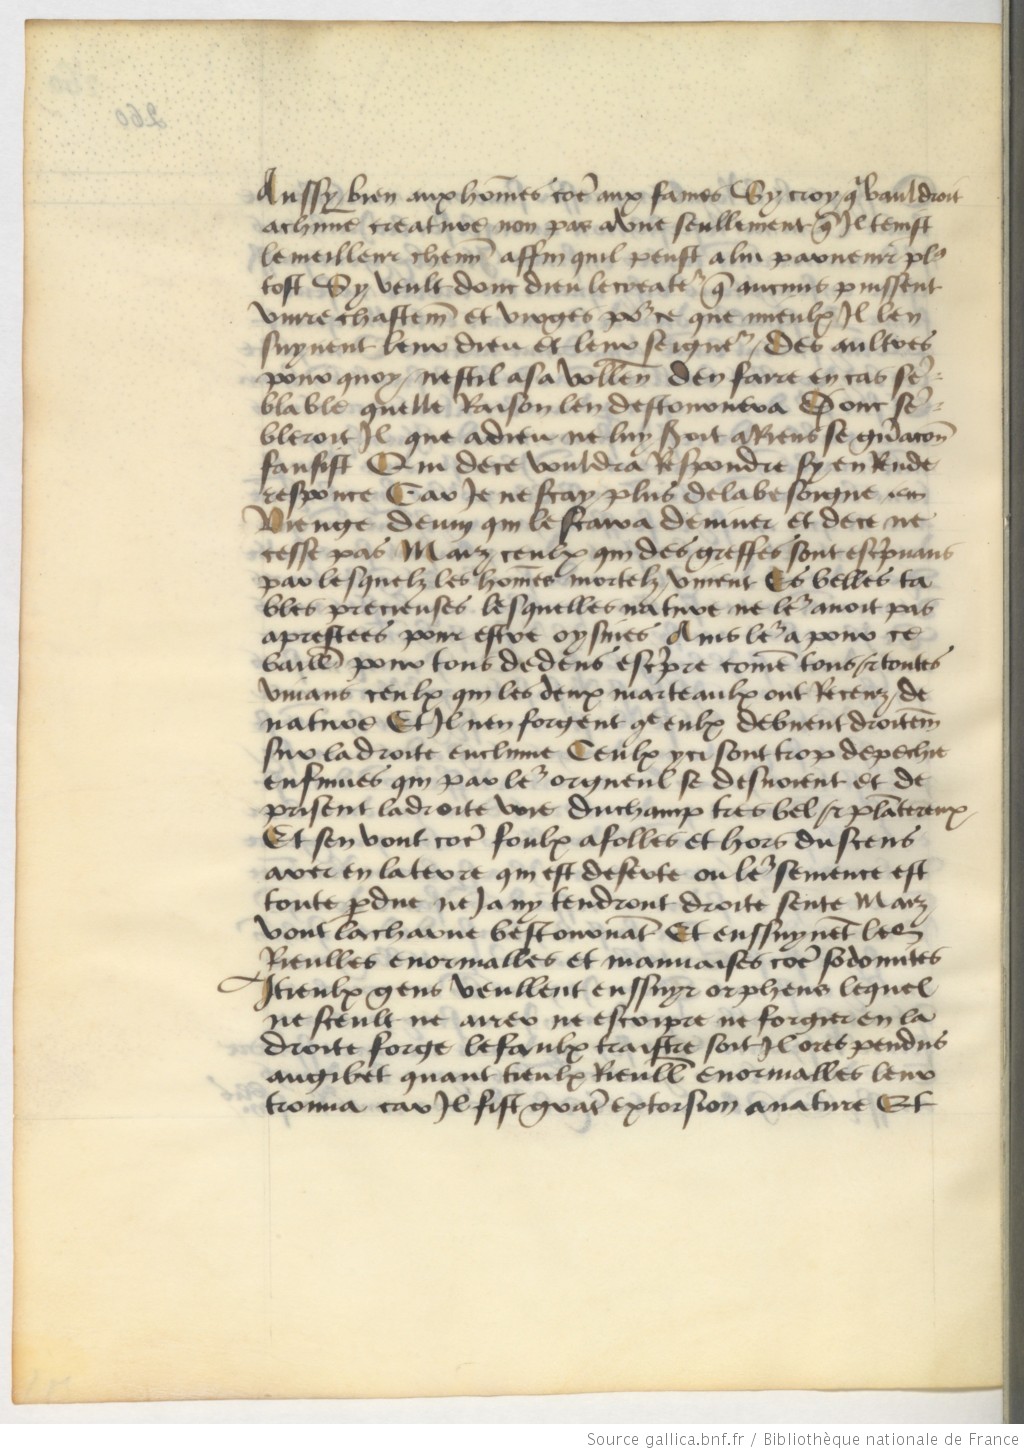 Aussy bien aux hom̄es com̄e aux fames Sy croy q̄ vauldroit
achūne creature non pas a une seullement q̄ Il tenist
le meilleur chemī affin quil peust a lui parvenir pl9
tost Sy veult donc dieu le create2 q̄ aucuns puissent
vivre chastem̄ et virges po2 ce que mieulx Il len
suyvent leur dieu et leur seigne2 / Des aultres
pour quoy / nestil a sa vollen̄ den faire en cas sē=
blable quelle Raison len destournera Donc sē=
bleroit Il que a dieu ne luy soit a Riens se gn̄acon̄
fausist Qui de ce vouldra Respondre sy en Rende
responce Car Je ne scay plus de la besoigne
Viengne devin qui le scaura deviner et de ce ne
cesse pas Maiz ceulx qui des greffes sont escpvans
par lesquelz les hom̄es mortelz vivent Es belles ta
bles precieuses lesquelles nature ne le2 avoit pas
aprestees pour estre oysives Ains le2 a pour ce
baill̄ pour tous dedens escpre comē tous et toutes
vivans ceulx qui les deux marteaulx ont Receuz / de
nature Et Il nen forgent q̄ eulx debvent droitem̄
sur la droite enclume Ceulx yci sont trop de pechie
enfumes qui par le2 orgueul se desvoient et de
prisent la droite voie du champ tres bel et plātereux
Et sen vont com̄e foulx afolles et hors du scens
arer en la terre qui est deserte ou le2 semence est
toute pdue ne Ja ny tendront droite sente Maiz
vont la charue bestournāt Et enssuynēt le2
Rieulles enormalles et mauvaises com̄e sodomites
Itieulx gens veullent enssuyr orpheus lequel
ne sceult ne arer ne escripre ne forgier en la
droite forge le faulx traistre soit Il ores pendus
au gibet quant tieulx Rieull̄ enormalles leur
trouva car Il fist grāt extorsion a nature Et
Source gallica.bnf.fr / Bibliothèque nationale de France